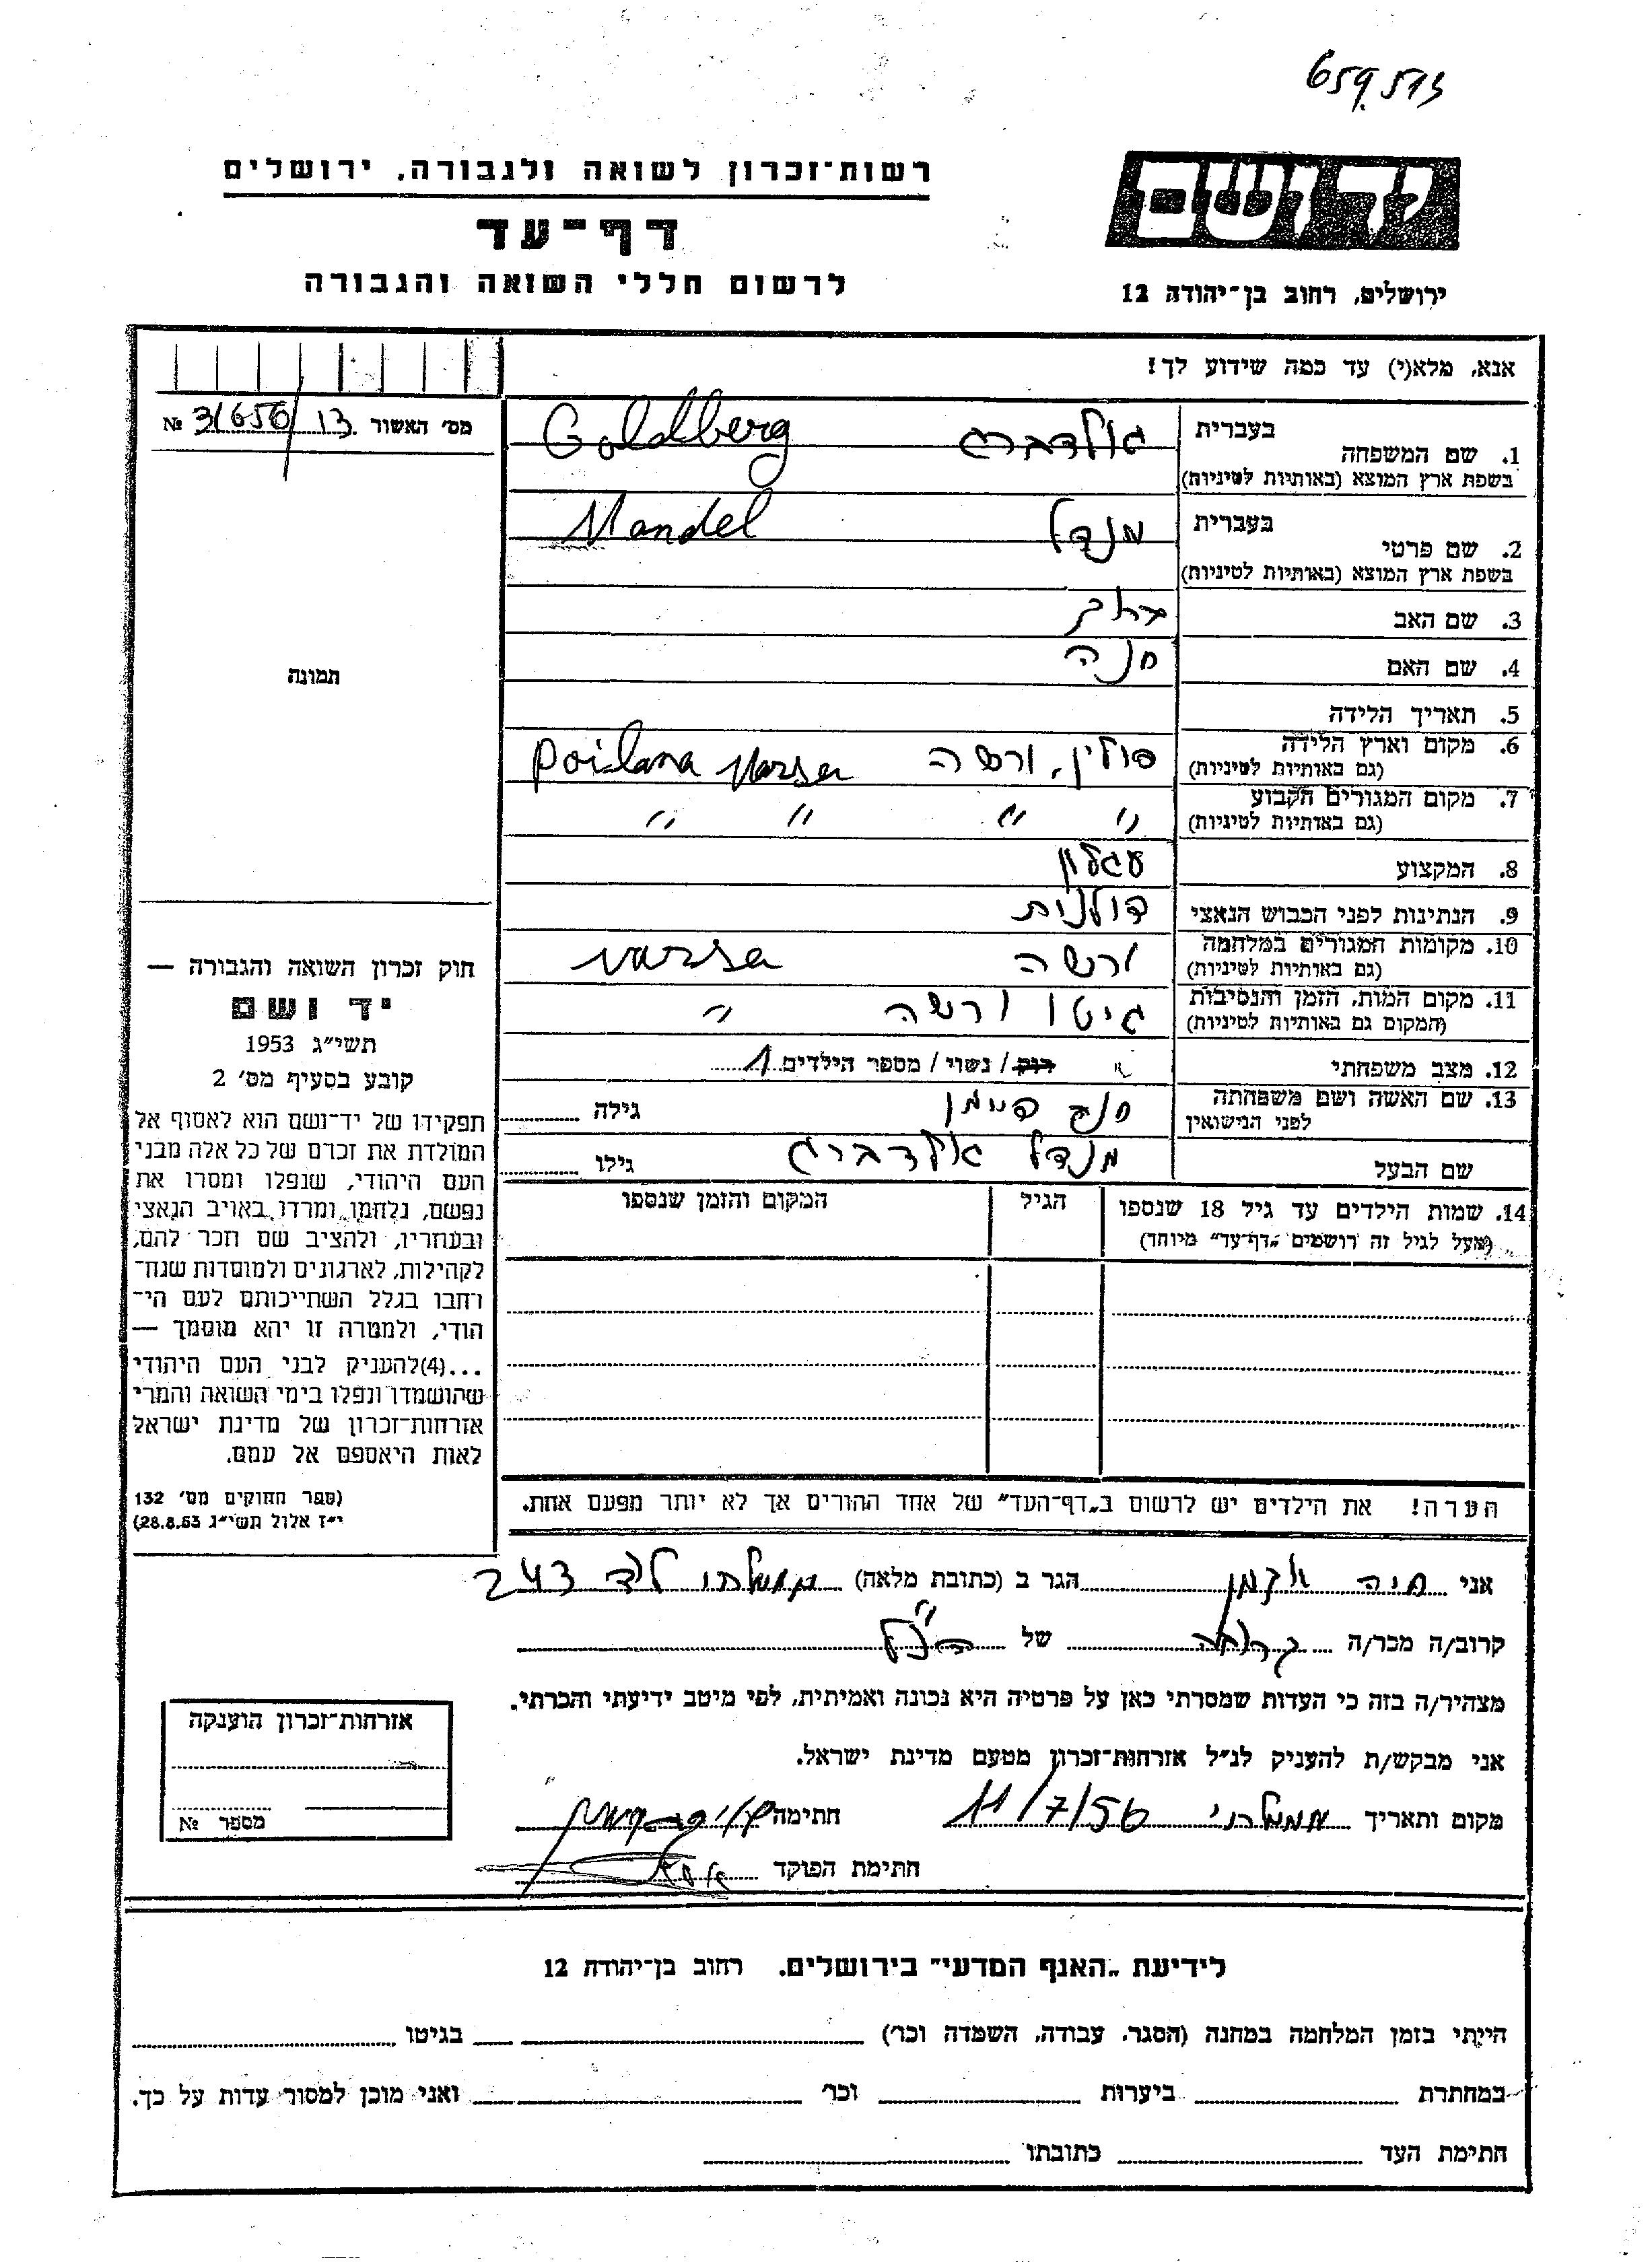 659.513
רשות־זכרון לשואה ולגבורה, ירושלים
יד ושם
דף־עד
לרשום חללי השואה והגבורה
ירושלים, רחוב בן־יהודה 12
אנא, מלא(י) עד כמה שידוע לך!
מס׳ האשור 31656/13 №
1. שם המשפחה בעברית גולדברג Goldberg
בשפת ארץ המוצא (באותיות לטיניות)
2. שם פרטי בעברית מנדל Mandel
בשפת ארץ המוצא (באותיות לטיניות)
3. שם האב ברוך
4. שם האם חנה
תמונה
5. תאריך הלידה
6. מקום וארץ הלידה פולין, ורשה Poilana Varsa
(גם באותיות לטיניות)
7. מקום המגורים הקבוע " " " "
(גם באותיות לטיניות)
8. המקצוע עגלון
9. הנתינות לפני הכבוש הנאצי פולנית
10. מקומות המגורים במלחמה ורשה Varsa
(גם באותיות לטיניות)
11. מקום המות, הזמן והנסיבות גיטו ורשה "
(המקום גם באותיות לטיניות)
12. מצב משפחתי רוק / נשוי / מספר הילדים 1
13. שם האשה ושם משפחתה גילה
לפני הנישואין
שם הבעל מנדל גולדברג גילו
14. שמות הילדים עד גיל 18 שנספו הגיל המקום והזמן שנספו
(מעל לגיל זה רושמים "דף־עד" מיוחד)
חוק זכרון השואה והגבורה —
יד ושם
תשי״ג 1953
קובע בסעיף מס׳ 2
תפקידו של יד־ושם הוא לאסוף אל
המולדת את זכרם של כל אלה מבני
העם היהודי, שנפלו ומסרו את
נפשם, נלחמו ומרדו באויב הנאצי
ובעוזריו, ולהציב שם וזכר להם,
לקהילות, לארגונים ולמוסדות שנח־
רחבו בגלל השתייכותם לעם הי־
הודי, ולמטרה זו יהא מוסמך —
...(4)להעניק לבני העם היהודי
שהושמדו ונפלו בימי השואה והמרי
אזרחות־זכרון של מדינת ישראל
לאות היאספם אל עמם.
(ספר החוקים מס׳ 132
י״ז אלול תשי״ג 28.8.53)
הערה! את הילדים יש לרשום ב„דף־העד" של אחד ההורים אך לא יותר מפעם אחת.
אני חיה הגר ב (כתובת מלאה) 243
קרוב/ה מכר/ה קרובה של הנ״ל
מצהיר/ה בזה כי העדות שמסרתי כאן על פרטיה היא נכונה ואמיתית, לפי מיטב ידיעתי והכרתי.
אני מבקש/ת להעניק לנ״ל אזרחות־זכרון מטעם מדינת ישראל.
מקום ותאריך 11/7/56 חתימה
חתימת הפוקד
אזרחות־זכרון הוענקה
מספר №
לידיעת „האגף המדעי" בירושלים. רחוב בן־יהודה 12
הייתי בזמן המלחמה במחנה (הסגר, עבודה, השמדה וכר׳) בגיטו
במחתרת ביערות וכר׳ ואני מוכן למסור עדות על כך.
חתימת העד כתובתו